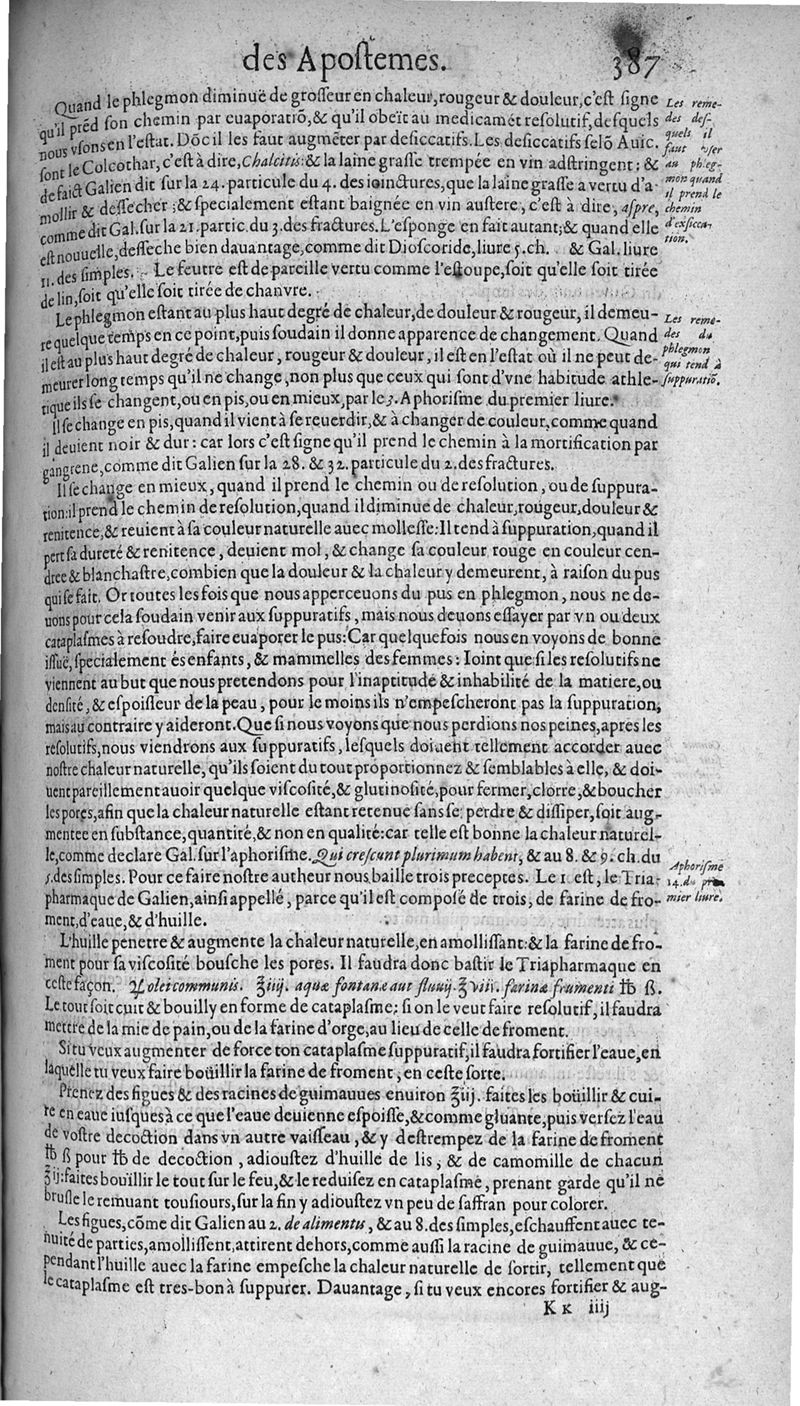 des Apostemes. 387
Quand le phlegmon diminuë de grosseur en chaleur, rougeur & douleur, c'est signe
qu'il prẽd son chemin par euaporatiõ, & qu'il obeït au medicamẽt resolutif, desquels
nous vsons en l'estat. Dõc il les faut augmẽter par desiccatifs. Les desiccatifs selõ Auic.
sont le Colcothar, c'est à dire, Chalcitis: & la laine grasse trempée en vin adstringent: &
de faict Galien dit sur la 24. particule du 4. des ioinctures, que la laine grasse a vertu d'a-
mollir & dessecher; & specialement estant baignée en vin austere, c'est à dire, aspre,
comme dit Gal. sur la 21. partic. du 3. des fractures. L'esponge en fait autant; & quand elle
est nouuelle, desseche bien dauantage, comme dit Dioscoride, liure 5. ch. & Gal. liure
11. des simples. Le feutre est de pareille vertu comme l'estoupe, soit qu'elle soit tirée
de lin, soit qu'elle soit tirée de chanvre.
Les reme-
des des-
quels il
faut vser
au phleg-
mon quand
il prend le
chemin
d'exsicca-
tion.
Le phlegmon estant au plus haut degré de chaleur, de douleur & rougeur, il demeu-
re quelque temps en ce point, puis soudain il donne apparence de changement. Quand
il est au plus haut degré de chaleur, rougeur & douleur, il est en l'estat où il ne peut de-
meurer long temps qu'il ne change, non plus que ceux qui sont d'vne habitude athle-
tique ils se changent, ou en pis, ou en mieux, par le 3. Aphorisme du premier liure.
Les reme-
des du
phlegmon
qui tend à
suppuratiõ.
Il se change en pis, quand il vient à se reuerdir, & à changer de couleur, comme quand
il deuient noir & dur: car lors c'est signe qu'il prend le chemin à la mortification par
gangrene, comme dit Galien sur la 28. & 32. particule du 2. des fractures.
Il se change en mieux, quand il prend le chemin ou de resolution, ou de suppura-
tion: il prend le chemin de resolution, quand il diminue de chaleur, rougeur, douleur &
renitence, & reuient à sa couleur naturelle auec mollesse: Il tend à suppuration, quand il
pert sa dureté & renitence, deuient mol, & change sa couleur rouge en couleur cen-
dree & blanchastre, combien que la douleur & la chaleur y demeurent, à raison du pus
qui se fait. Or toutes les fois que nous apperceuons du pus en phlegmon, nous ne de-
uons pour cela soudain venir aux suppuratifs, mais nous deuons essayer par vn ou deux
cataplasmes à resoudre, faire euaporer le pus: Car quelquefois nous en voyons de bonne
issuë, specialement és enfants, & mammelles des femmes: Ioint que si les resolutifs ne
viennent au but que nous pretendons pour l'inaptitude & inhabilité de la matiere, ou
densité, & espoisseur de la peau, pour le moins ils n'empescheront pas la suppuration,
mais au contraire y aideront. Que si nous voyons que nous perdions nos peines, apres les
resolutifs, nous viendrons aux suppuratifs, lesquels doiuent tellement accorder auec
nostre chaleur naturelle, qu'ils soient du tout proportionnez & semblables à elle, & doi-
uent pareillement auoir quelque viscosité, & glutinosité, pour fermer, clorre, & boucher
les pores, afin que la chaleur naturelle estant retenue sans se perdre & dissiper, soit aug-
mentee en substance, quantité, & non en qualité: car telle est bonne la chaleur naturel-
le, comme declare Gal. sur l'aphorisme. Qui crescunt plurimum habent, & au 8. & 9. ch. du
5. des simples. Pour ce faire nostre autheur nous baille trois preceptes. Le 1 est, le Tria-
pharmaque de Galien, ainsi appellé, parce qu'il est composé de trois, de farine de fro-
ment, d'eaue, & d'huille.
Aphorisme
14. du pre-
mier liure.
L'huille penetre & augmente la chaleur naturelle, en amollissant: & la farine de fro-
ment pour sa viscosité bousche les pores. Il faudra donc bastir le Triapharmaque en
ceste façon. ℞ olei communis. ℥iiij. aquæ fontanæ aut fluuij. ℥viii. farinæ frumenti ℔ ß.
Le tout soit cuit & bouilly en forme de cataplasme: si on le veut faire resolutif, il faudra
mettre de la mie de pain, ou de la farine d'orge, au lieu de celle de froment.
Si tu veux augmenter de force ton cataplasme suppuratif, il faudra fortifier l'eaue, en
laquelle tu veux faire boüillir la farine de froment, en ceste sorte.
Prenez des figues & des racines de guimauues enuiron ℥iij. faites les boüillir & cui-
re en eaue iusques à ce que l'eaue deuienne espoisse, & comme gluante, puis versez l'eau
de vostre decoction dans vn autre vaisseau, & y destrempez de la farine de froment
℔ ß pour ℔ de decoction, adioustez d'huille de lis, & de camomille de chacun
℥ij: faites boüillir le tout sur le feu, & le reduisez en cataplasme, prenant garde qu'il ne
brusle le remuant tousiours, sur la fin y adioustez vn peu de saffran pour colorer.
Les figues, cõme dit Galien au 2. de alimentu, & au 8. des simples, eschauffent auec te-
nuité de parties, amollissent, attirent dehors, comme aussi la racine de guimauue, & ce-
pendant l'huille auec la farine empesche la chaleur naturelle de sortir, tellement que
le cataplasme est tres-bon à suppurer. Dauantage, si tu veux encores fortifier & aug-
K k iiij